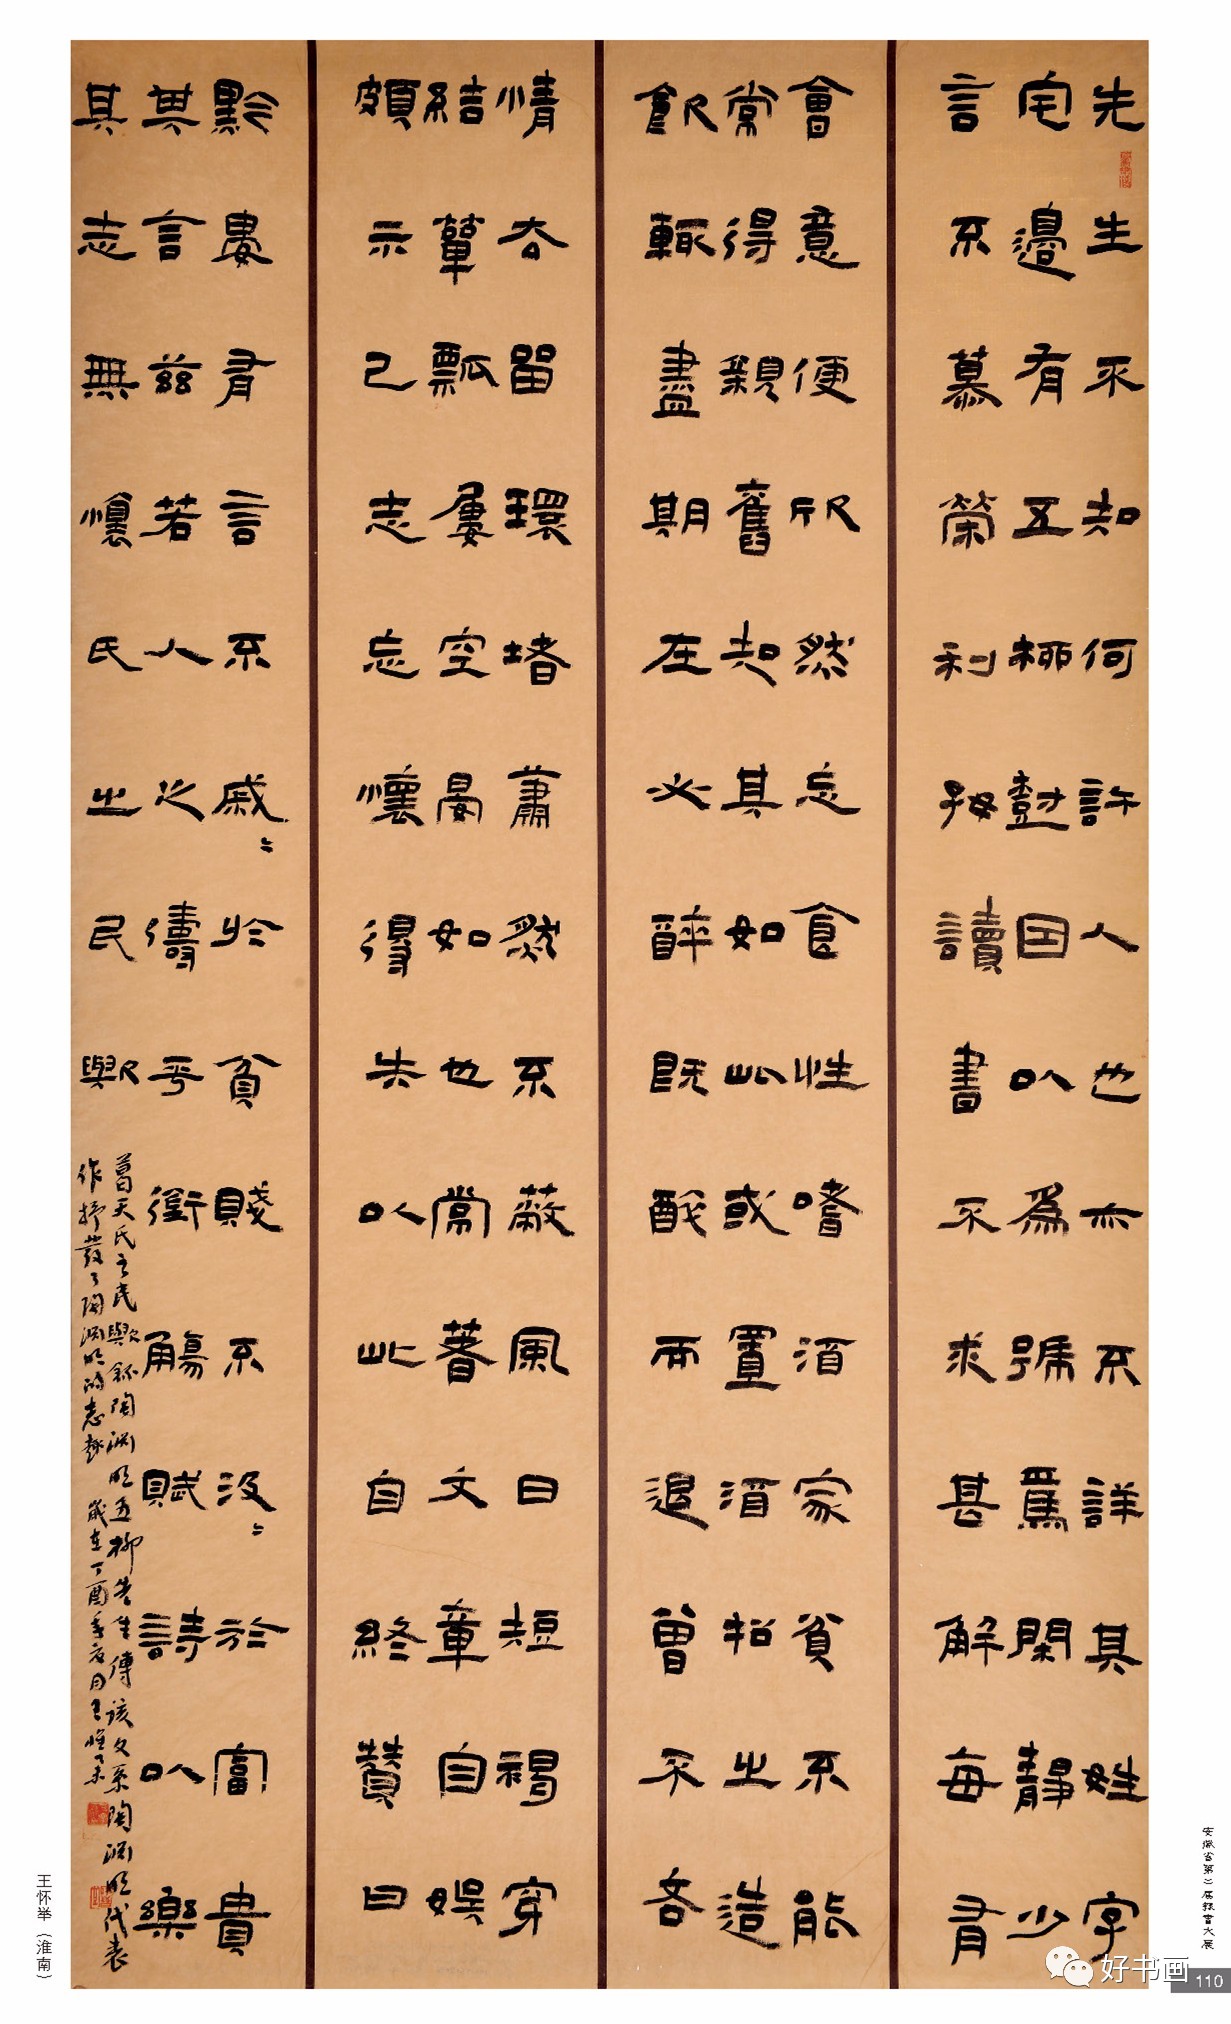 先生不知何許人也亦不詳其姓字
宅邊有五柳樹因以為號焉閑靜少
言不慕榮利好讀書不求甚解每有
會意便欣然忘食性嗜酒家貧不能
常得親舊知其如此或置酒招之造
飲輒盡期在必醉既醉而退曾不吝
情去留環堵蕭然不蔽風日短褐穿
結簞瓢屢空晏如也常著文章自娛
頗示己志忘懷得失以此自終贊曰
黔婁有言不戚〻於貧賤不汲〻於富貴
其言茲若人之儔乎銜觴賦詩以樂
其志無懷氏之民歟
葛天氏之民歟 錄陶淵明五柳先生傳該文系陶淵明代表
作抒發了陶淵明的志趣 歲在丁酉年 月王懷舉
王怀举（淮南）
安徽省第二届隶书大展
好书画
110